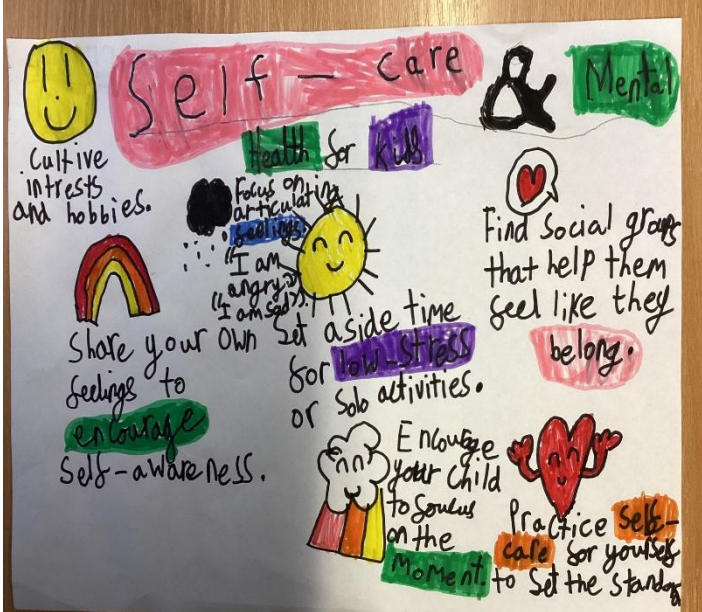 Self-care & Mental
Health for Kids
Cultive
intrests
and hobbies.
Focus on
articulating
feelings.
"I am
angry"
("I am sad").
Find Social groups
that help them
feel like they
belong.
Share your own
feelings to
encourage
Self-awareness.
Set aside time
for low-stress
or solo activities.
Encourge
your child
to foucus
on the
Moment.
Practice self-
care for yourself
to set the standard